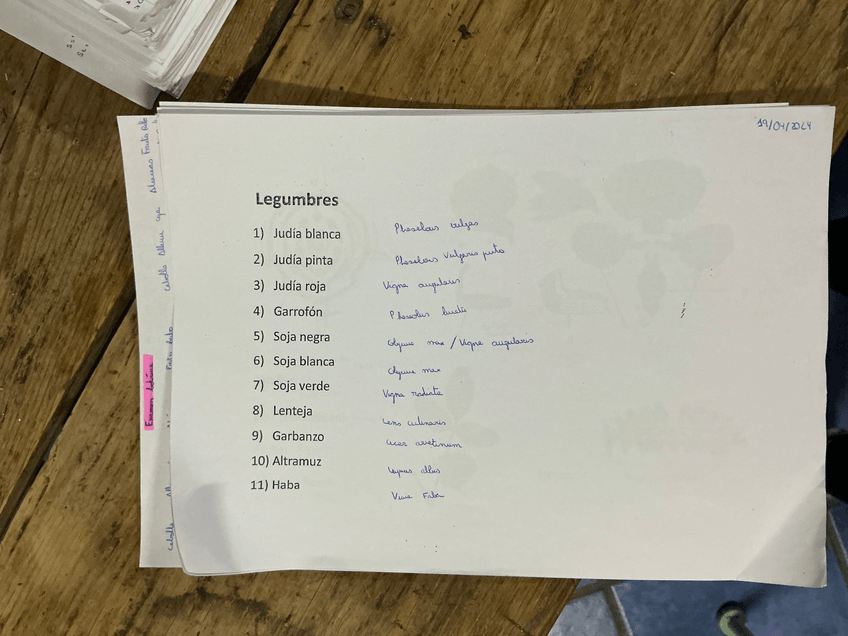 19/04/2024
Legumbres
1) Judía blanca Phaseolus vulgas
2) Judía pinta Phaseolus vulgaris pinto
3) Judía roja Vigna angularis
4) Garrofón Phaseolus
5) Soja negra Glycine max / Vigna angularis
6) Soja blanca Glycine max
7) Soja verde Vigna radiata
8) Lenteja Lens culinaris
9) Garbanzo Cicer arietinum
10) Altramuz Lupinus albus
11) Haba Vicia Faba
Examen
Cebolla Allium cepa
Cebolla